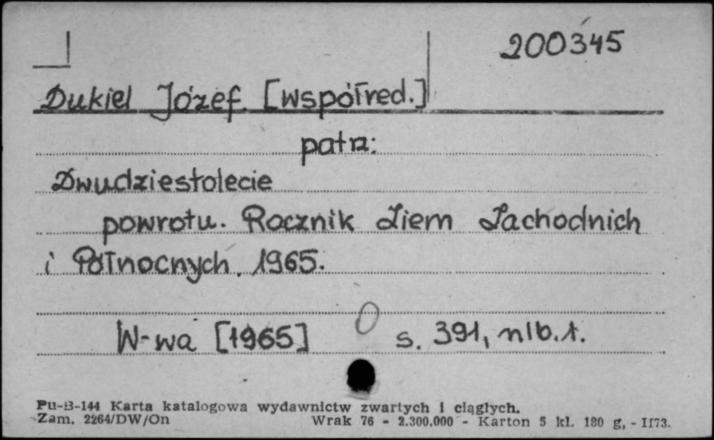 200345
Dukiel Józef. [współred.]
patrz:
Dwudziestolecie
powrotu. Rocznik Ziem Zachodnich
i Północnych. 1965.
W-wa [1965] s. 391, nlb. 1.
Pu-B-144 Karta katalogowa wydawnictw zwartych i ciągłych.
Zam. 2264/DW/On Wrak 76 - 2.300.000 - Karton 5 kl. 180 g, - II73.